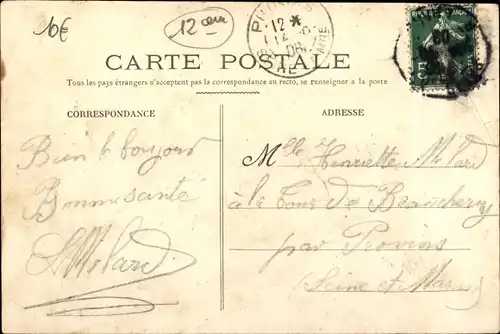 10€
12 em
PROVINS
12 *
CARTE POSTALE
Tous les pays étrangers n'acceptent pas la correspondance au recto, se renseigner à la poste
CORRESPONDANCE
ADRESSE
Bien le bonjour
Bonne santé
Molard
Mlle Henriette Molard
à la Cour de Beauchery
par Provins
(Seine et Marne)